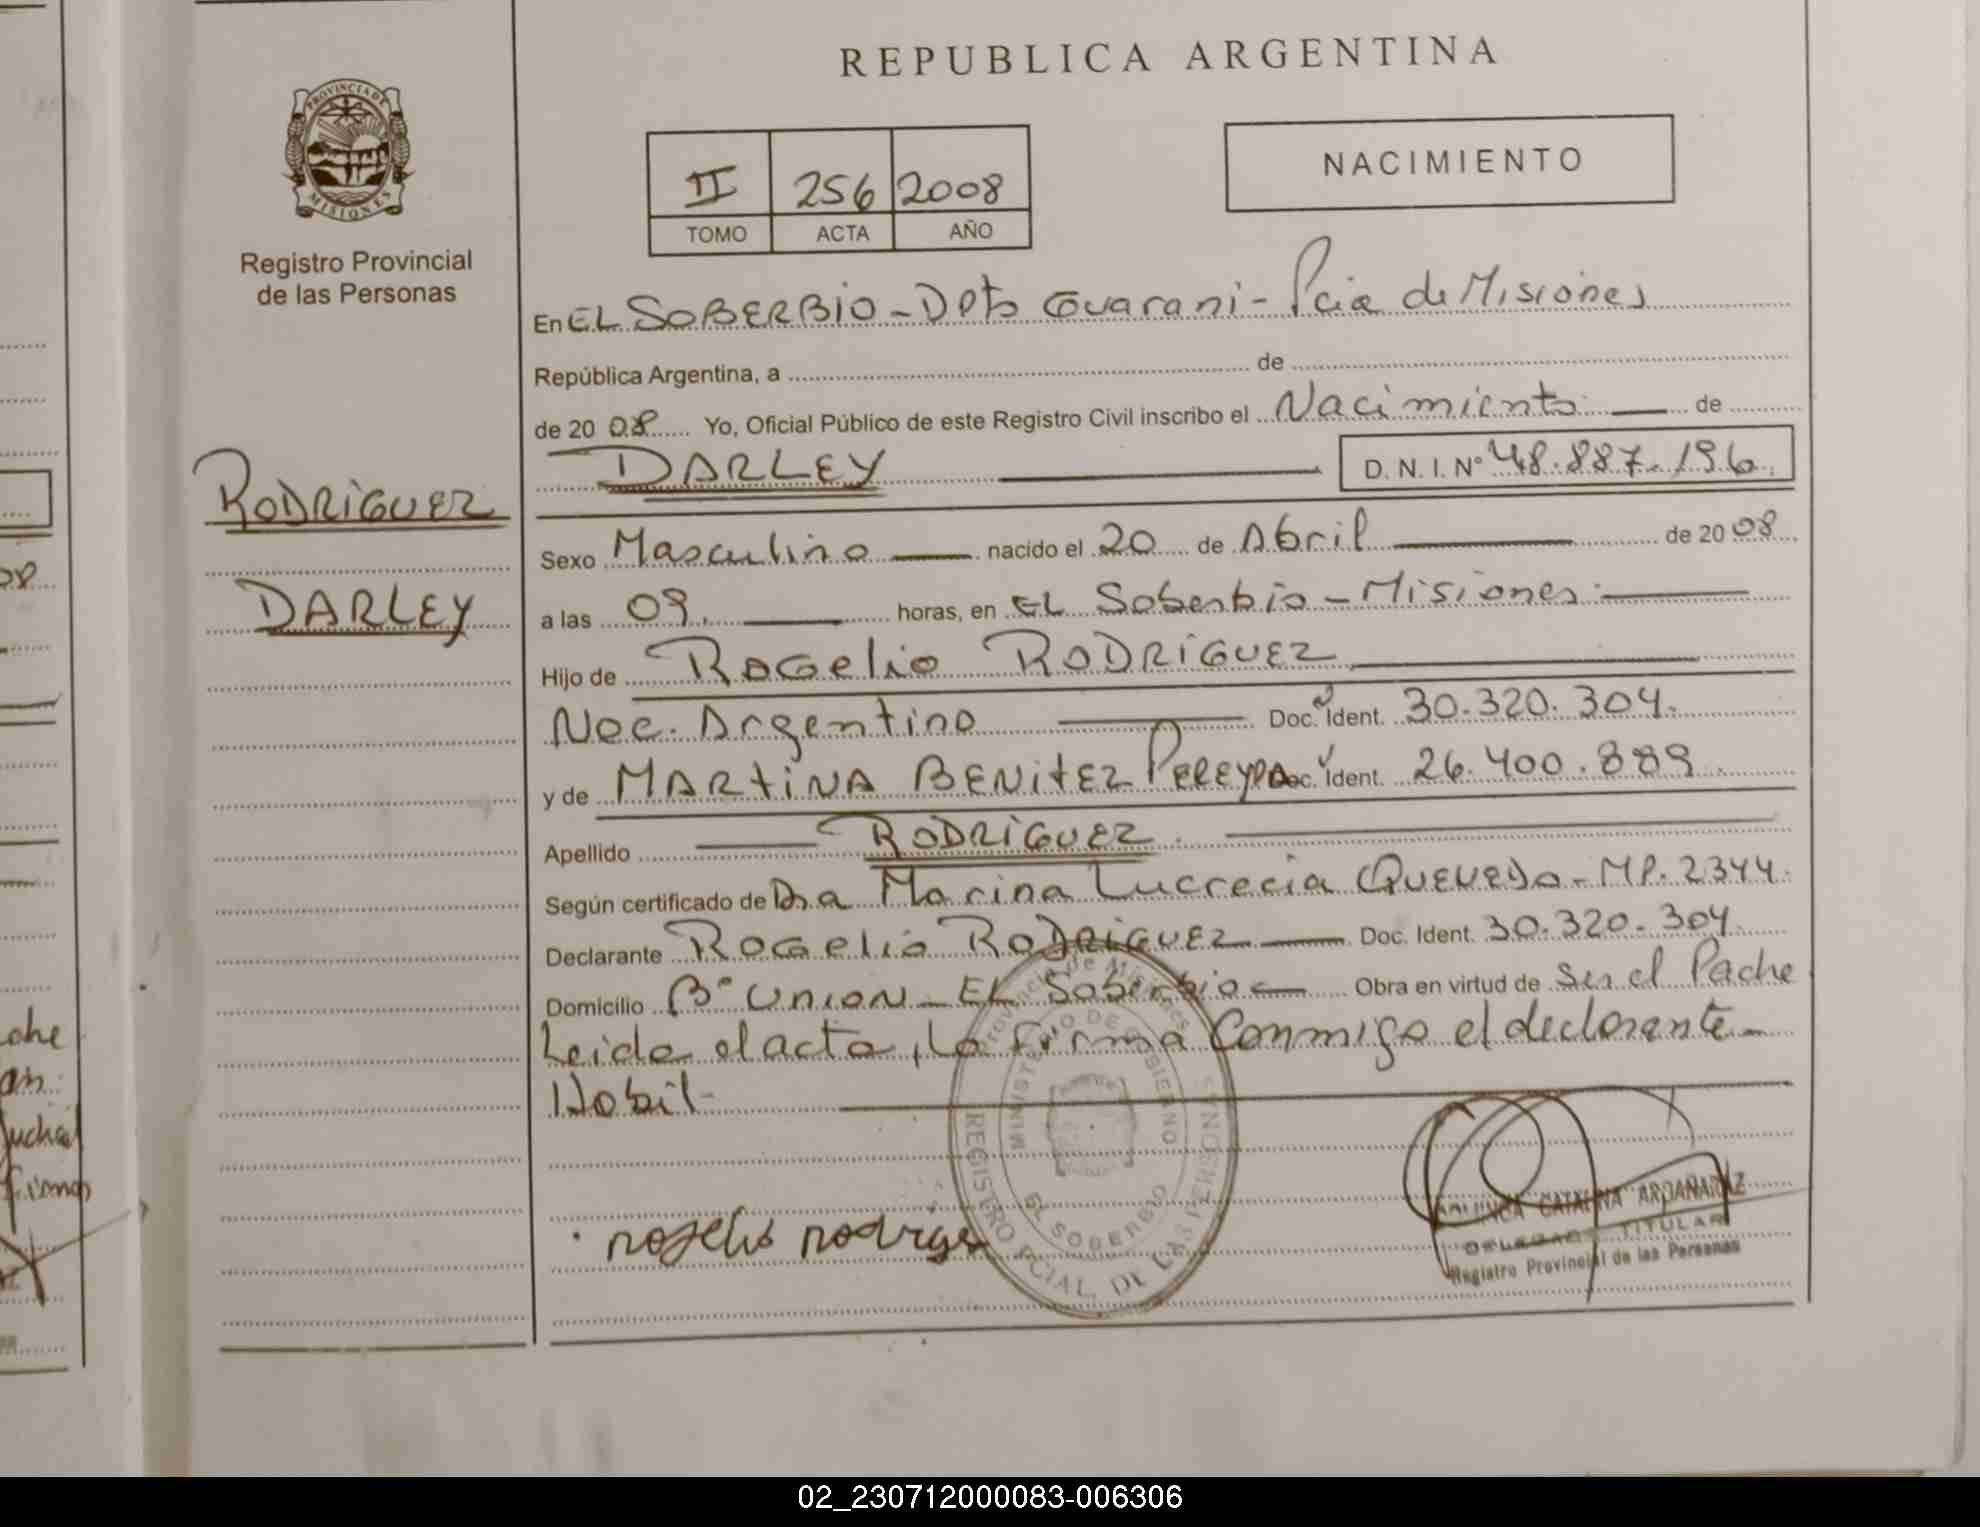 REPUBLICA ARGENTINA
PROVINCIA DE
MISIONES
Registro Provincial
de las Personas
II 256 2008
TOMO ACTA AÑO
NACIMIENTO
En EL SOBERBIO - Dpto Guarani - Pcia de Misiones
República Argentina, a de
de 20 08 Yo, Oficial Público de este Registro Civil inscribo el Nacimiento de
DARLEY D. N. I. N° 48.887.196
RODRIGUEZ
DARLEY
Sexo Masculino nacido el 20 de Abril de 20 08
a las 09. horas, en EL Soberbio - Misiones
Hijo de Rogelio RODRIGUEZ
Nac. Argentino Doc. Ident. 30.320.304.
y de MARTINA BENITEZ PEREYRA Doc. Ident. 26.400.889
Apellido RODRIGUEZ
Según certificado de Dra Marina Lucrecia QUEVEDO - MP. 2344
Declarante ROGELIO RODRIGUEZ Doc. Ident. 30.320.304.
Domicilio B° UNION - EL Soberbio Obra en virtud de Ser el Padre
Leida el acta, la firma conmigo el declarante
Habil-
Provincia de Misiones
MINISTERIO DE GOBIERNO
EL SOBERBIO
REGISTRO PROVINCIAL DE LAS PERSONAS
CATALINA ARDAÑARAZ
TITULAR
Registro Provincial de las Personas
02_230712000083-006306